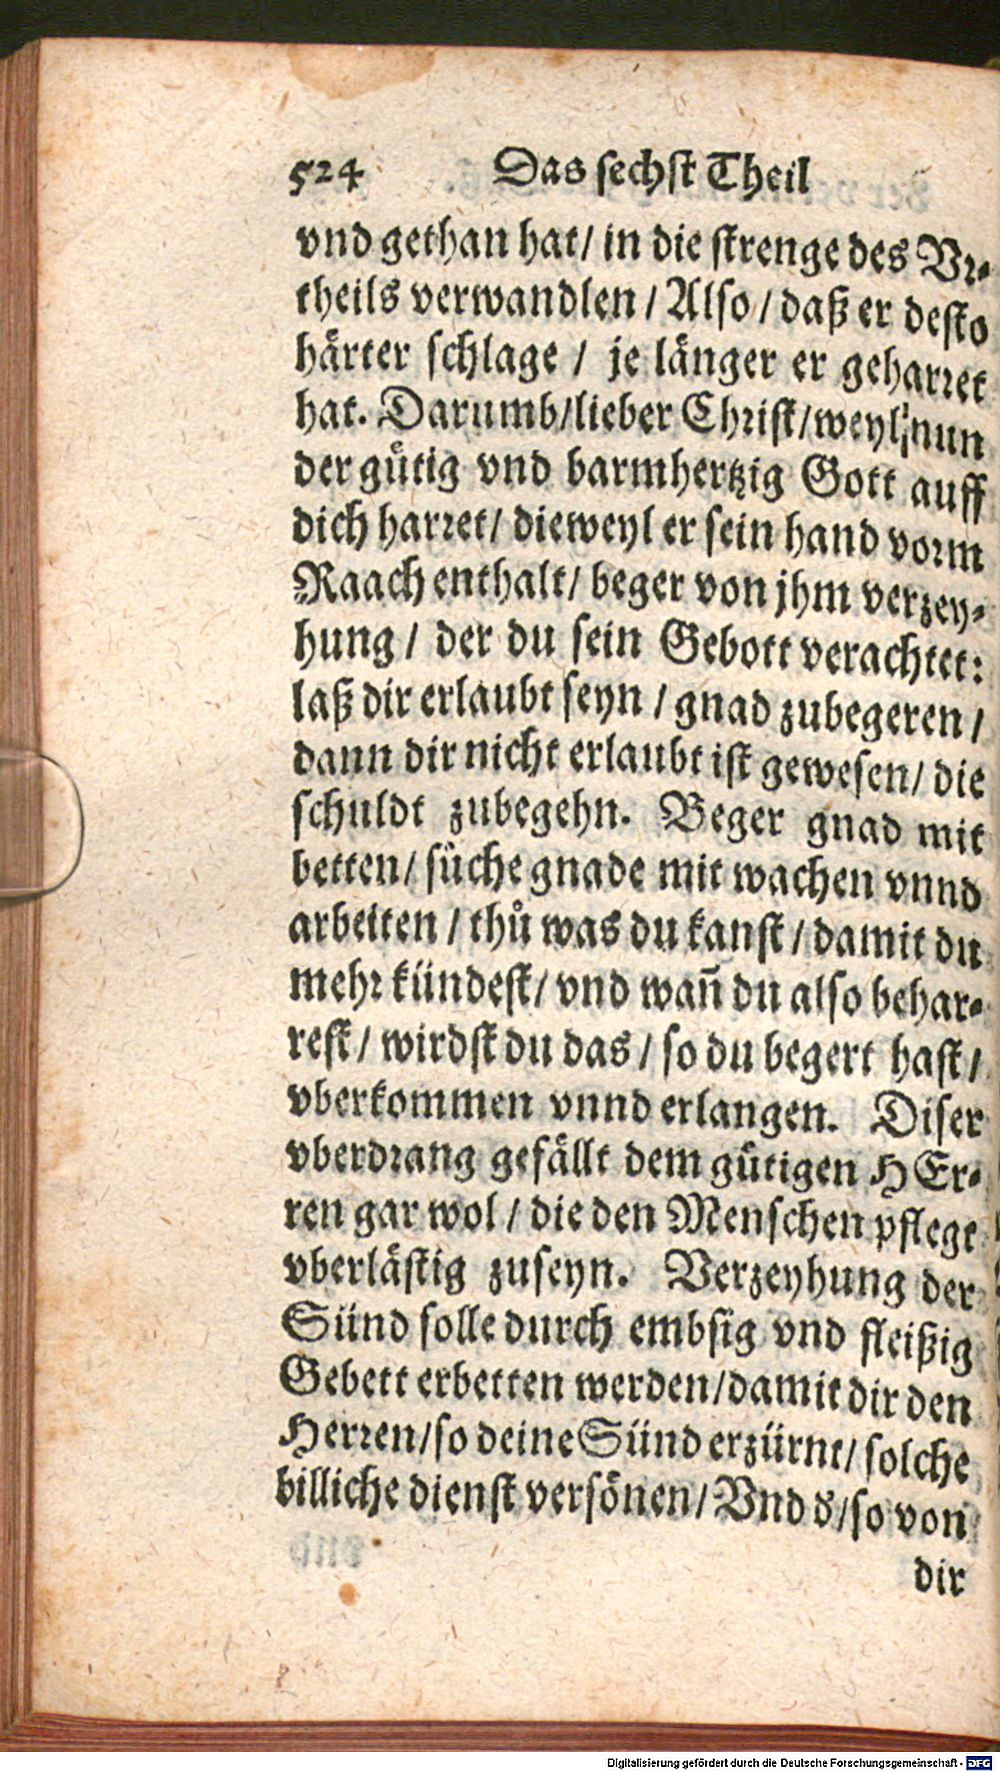 524 Das sechst Theil
vnd gethan hat/ in die strenge des Vr-
theils verwandlen / Also / daß er desto
härter schlage / je länger er geharret
hat. Darumb/lieber Christ/weyl nun
der gütig vnd barmhertzig Gott auff
dich harret/ dieweyl er sein hand vorm
Raach enthalt/ beger von jhm verzey-
hung / der du sein Gebott verachtet:
laß dir erlaubt seyn / gnad zubegeren /
dann dir nicht erlaubt ist gewesen/ die
schuldt zubegehn. Beger gnad mit
betten/ sůche gnade mit wachen vnnd
arbeiten / thů was du kanst / damit du
mehr kündest/ vnd wañ du also behar-
rest / wirdst du das / so du begert hast /
vberkommen vnnd erlangen. Diser
vberdrang gefällt dem gütigen HEr-
ren gar wol / die den Menschen pflegt
vberlästig zuseyn. Verzeyhung der
Sünd solle durch embsig vnd fleißig
Gebett erbetten werden/damit dir den
Herren/so deine Sünd erzürnt/ solche
billiche dienst versönen/ Vnd d̕/so von
dir
Digitalisierung gefördert durch die Deutsche Forschungsgemeinschaft - DFG